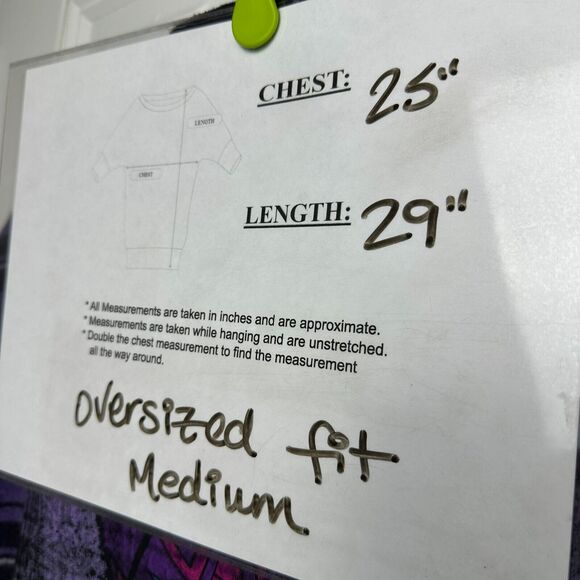 CHEST: 25"
LENGTH
CHEST
LENGTH: 29"
* All Measurements are taken in inches and are approximate.
* Measurements are taken while hanging and are unstretched.
* Double the chest measurement to find the measurement
all the way around.
Oversized fit
Medium